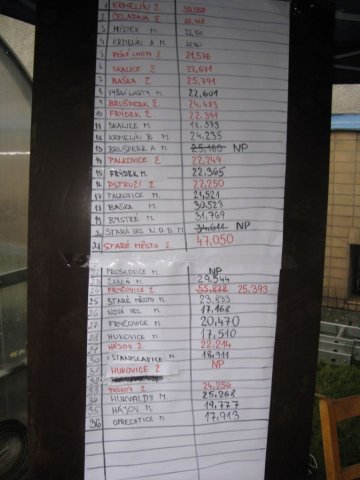 1 KRMELÍN Ž
2 ČELADNÁ Ž
3 MÍSTEK M
4 KRMELÍN A M
5 VYŠNÍ LHOTY Ž 21,576
6 SKALICE Ž 22,671
7 BAŠKA Ž 25,791
8 VYŠNÍ LHOTY M 22,601
9 BRUŠPERK Ž 24,483
10 FRÝDEK Ž 22,391
11 SKALICE M 18,573
12 KRMELÍN B M. 24,235
13 BRUŠPERK A M 25,180 NP
14 PALKOVICE Ž 22,249
15 FRÝDEK M 22,365
16 PSTRUŽÍ Ž 22,250
17 PALKOVICE M 21,521
18 BAŠKA M 30,523
19 BYSTRÉ M. 31,769
STARÁ VES N.O.B M 34,611 NP
21 STARÉ MĚSTO Ž 47,050
22 PROSKOVICE M NP
23 ŽABEŇ M 29,544
24 FRYČOVICE Ž 55,878 25,393
25 STARÉ MĚSTO M 23,833
26 NOVÁ VES M 17,168
27 FRYČOVICE M 20,470
28 HUKOVICE M 17,510
29 HÁJOV Ž 22,214
30 STANISLAVICE M 18,911
31 HUKOVICE Ž NP
33 PASKOV Ž 24,256
34 HUKVALDY M 25,268
35 HÁJOV M 19,777
36 OPRECHTICE M 17,913